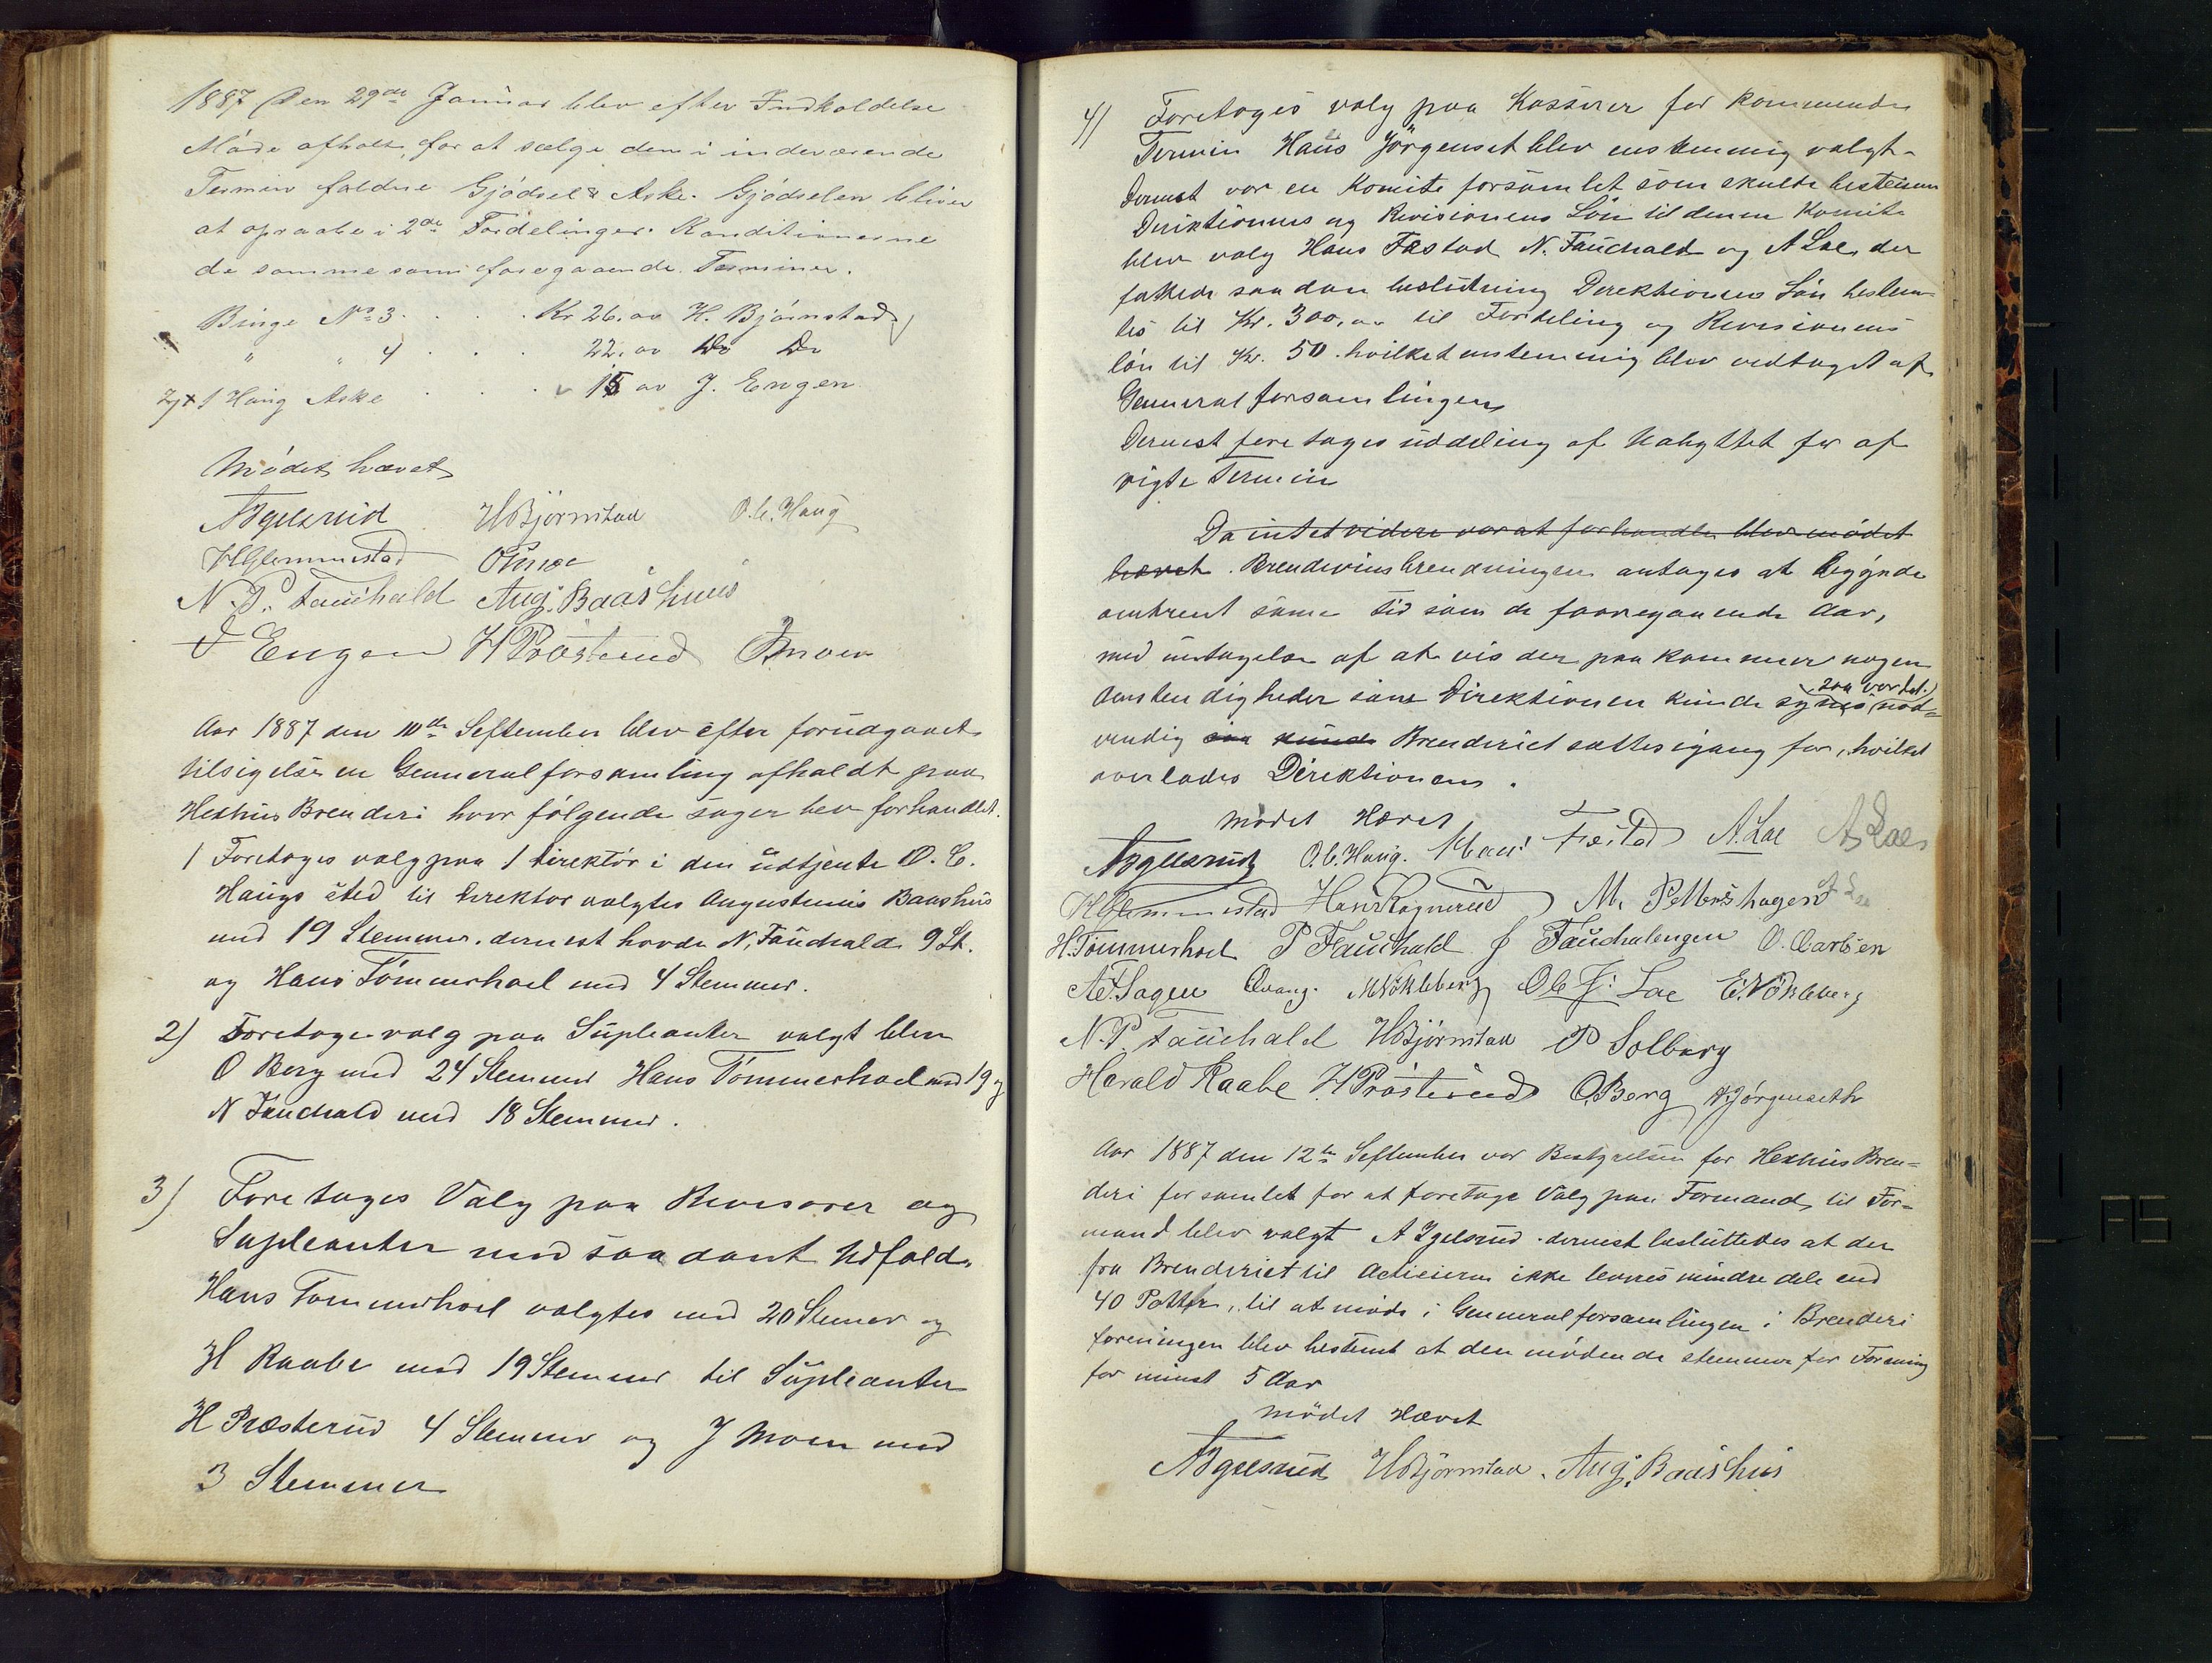 1887 Den 29de Januar blev efter Indkaldelse
Møde afholt, for at sælge den i indeværende
Termin faldne Gjødsel & Aske. Gjødselen bliver
at opraabe i 2de Fordelinger. Konditionerne
de samme som foregaaende Terminer.
Binge No 3 . . . Kr 26. av H. Bjørnstad
" " 4 . . . 22. av Do Do
1 Haug Aske . . . 15 av J. Engen
Mødet hævet
A Igelsrud H Bjørnstad O. C. Haug
H Glemmestad
N. P. Fauchald Aug. Baashuus
J Engen H Præsterud J Moen
Aar 1887 den 10de September blev efter forudgaaet
tilsigelse en Generalforsamling afholdt paa
Hexhus Brenderi hvor følgende sager blev forhandlet.
1 Foretoges valg paa 1 direktør i den udtjente O. C.
Haugs sted til direktør valgtes Augustinus Baashus
med 19 Stemmer. dernest havde N. Fauchald 9 St.
og Hans Tømmerhoel med 4 Stemmer.
2) Foretoges valg paa Supleanter valgt blev
O Berg med 24 Stemmer Hans Tømmerhoel med 19 og
N Fauchald med 18 Stemmer.
3) Foretoges Valg paa Revisorer og
Supleanter med saadant Udfald.
Hans Tømmerhoel valgtes med 20 Stemer og
H Raabe med 19 Stemmer til Supleanter
H Præsterud 4 Stemmer og J Moen med
3 Stemmer
4) Foretoges valg paa Kasserer for kommende
Termin Hans Jørgenset blev enstemmig valgt.
Dernest var en Komite forsamlet som skulde bestemme
Direktionens og Revisionens Løn til denne Komite
blev valg Hans Fæstad N. Fauchald og A Lae, der
fattede saadan beslutning Direktionens Løn bestem-
tes til Kr. 300,00 til Fordeling og Revisionens
løn til Kr. 50. hvilket enstemmig blev vedtaget af
Generalforsamlingen
Dernest foretoges uddeling af Udbyttet for af
vigte Termin
Da intet videre var at forhandle blev mødet
hævet. Brendevinsbrendningen antages at begynde
omtrent same tid som de foregaaende Aar,
med untagelse af at vis der paa kommer nogen
Omstendigheder som Direktionen kunde synes (saa vardet.) nød-
vendig saa kunde Brenderiet sattes igang før, hvilket
overlades Direktionen.
Mødet Hævet
A Igelsrud O. C. Haug. Hans Fæstad A. Lae A Lae
H Glemmestad Hans Rognerud M. Pettershagen
H. Tømmerhoel P Fauchald J Fauchalengen O. Carlsen
Qvang. M Nøkleberg Ole J. Lae E. Nøkleberg
N. P. Fauchald H Bjørnstad P Solberg
Harald Raabe H. Præsterud O. Berg H Jørgenseth
Aar 1887 den 12te September var Bestyrelsen for Hexhus Bren=
deri forsamlet for at foretage Valg paa Formand, til For=
mand blev valgt A Igelsrud. dernest besluttedes at der
fra Brenderiet til Actieierne ikke leveres mindre dele end
40 Potter, til at møde i Generalforsamlingen i Brenderi
foreningen blev bestemt at den mødende stemmer for Forening
for minst 5 Aar
Mødet Hævet
A Igelsrud H Bjørnstad. Aug. Baashus